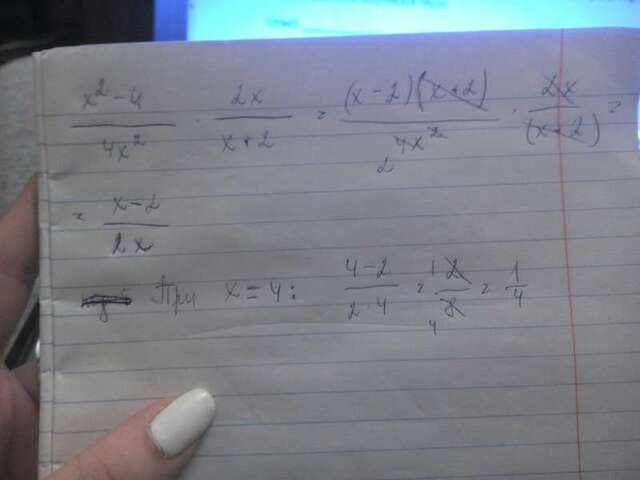 x² - 4 / 4x² · 2x / x + 2 = (x - 2)(x + 2) / 4x² 2 · 2x / (x + 2) =
= x - 2 / 2x
При x = 4: 4 - 2 / 2 · 4 = 1 2 / 8 4 = 1 / 4